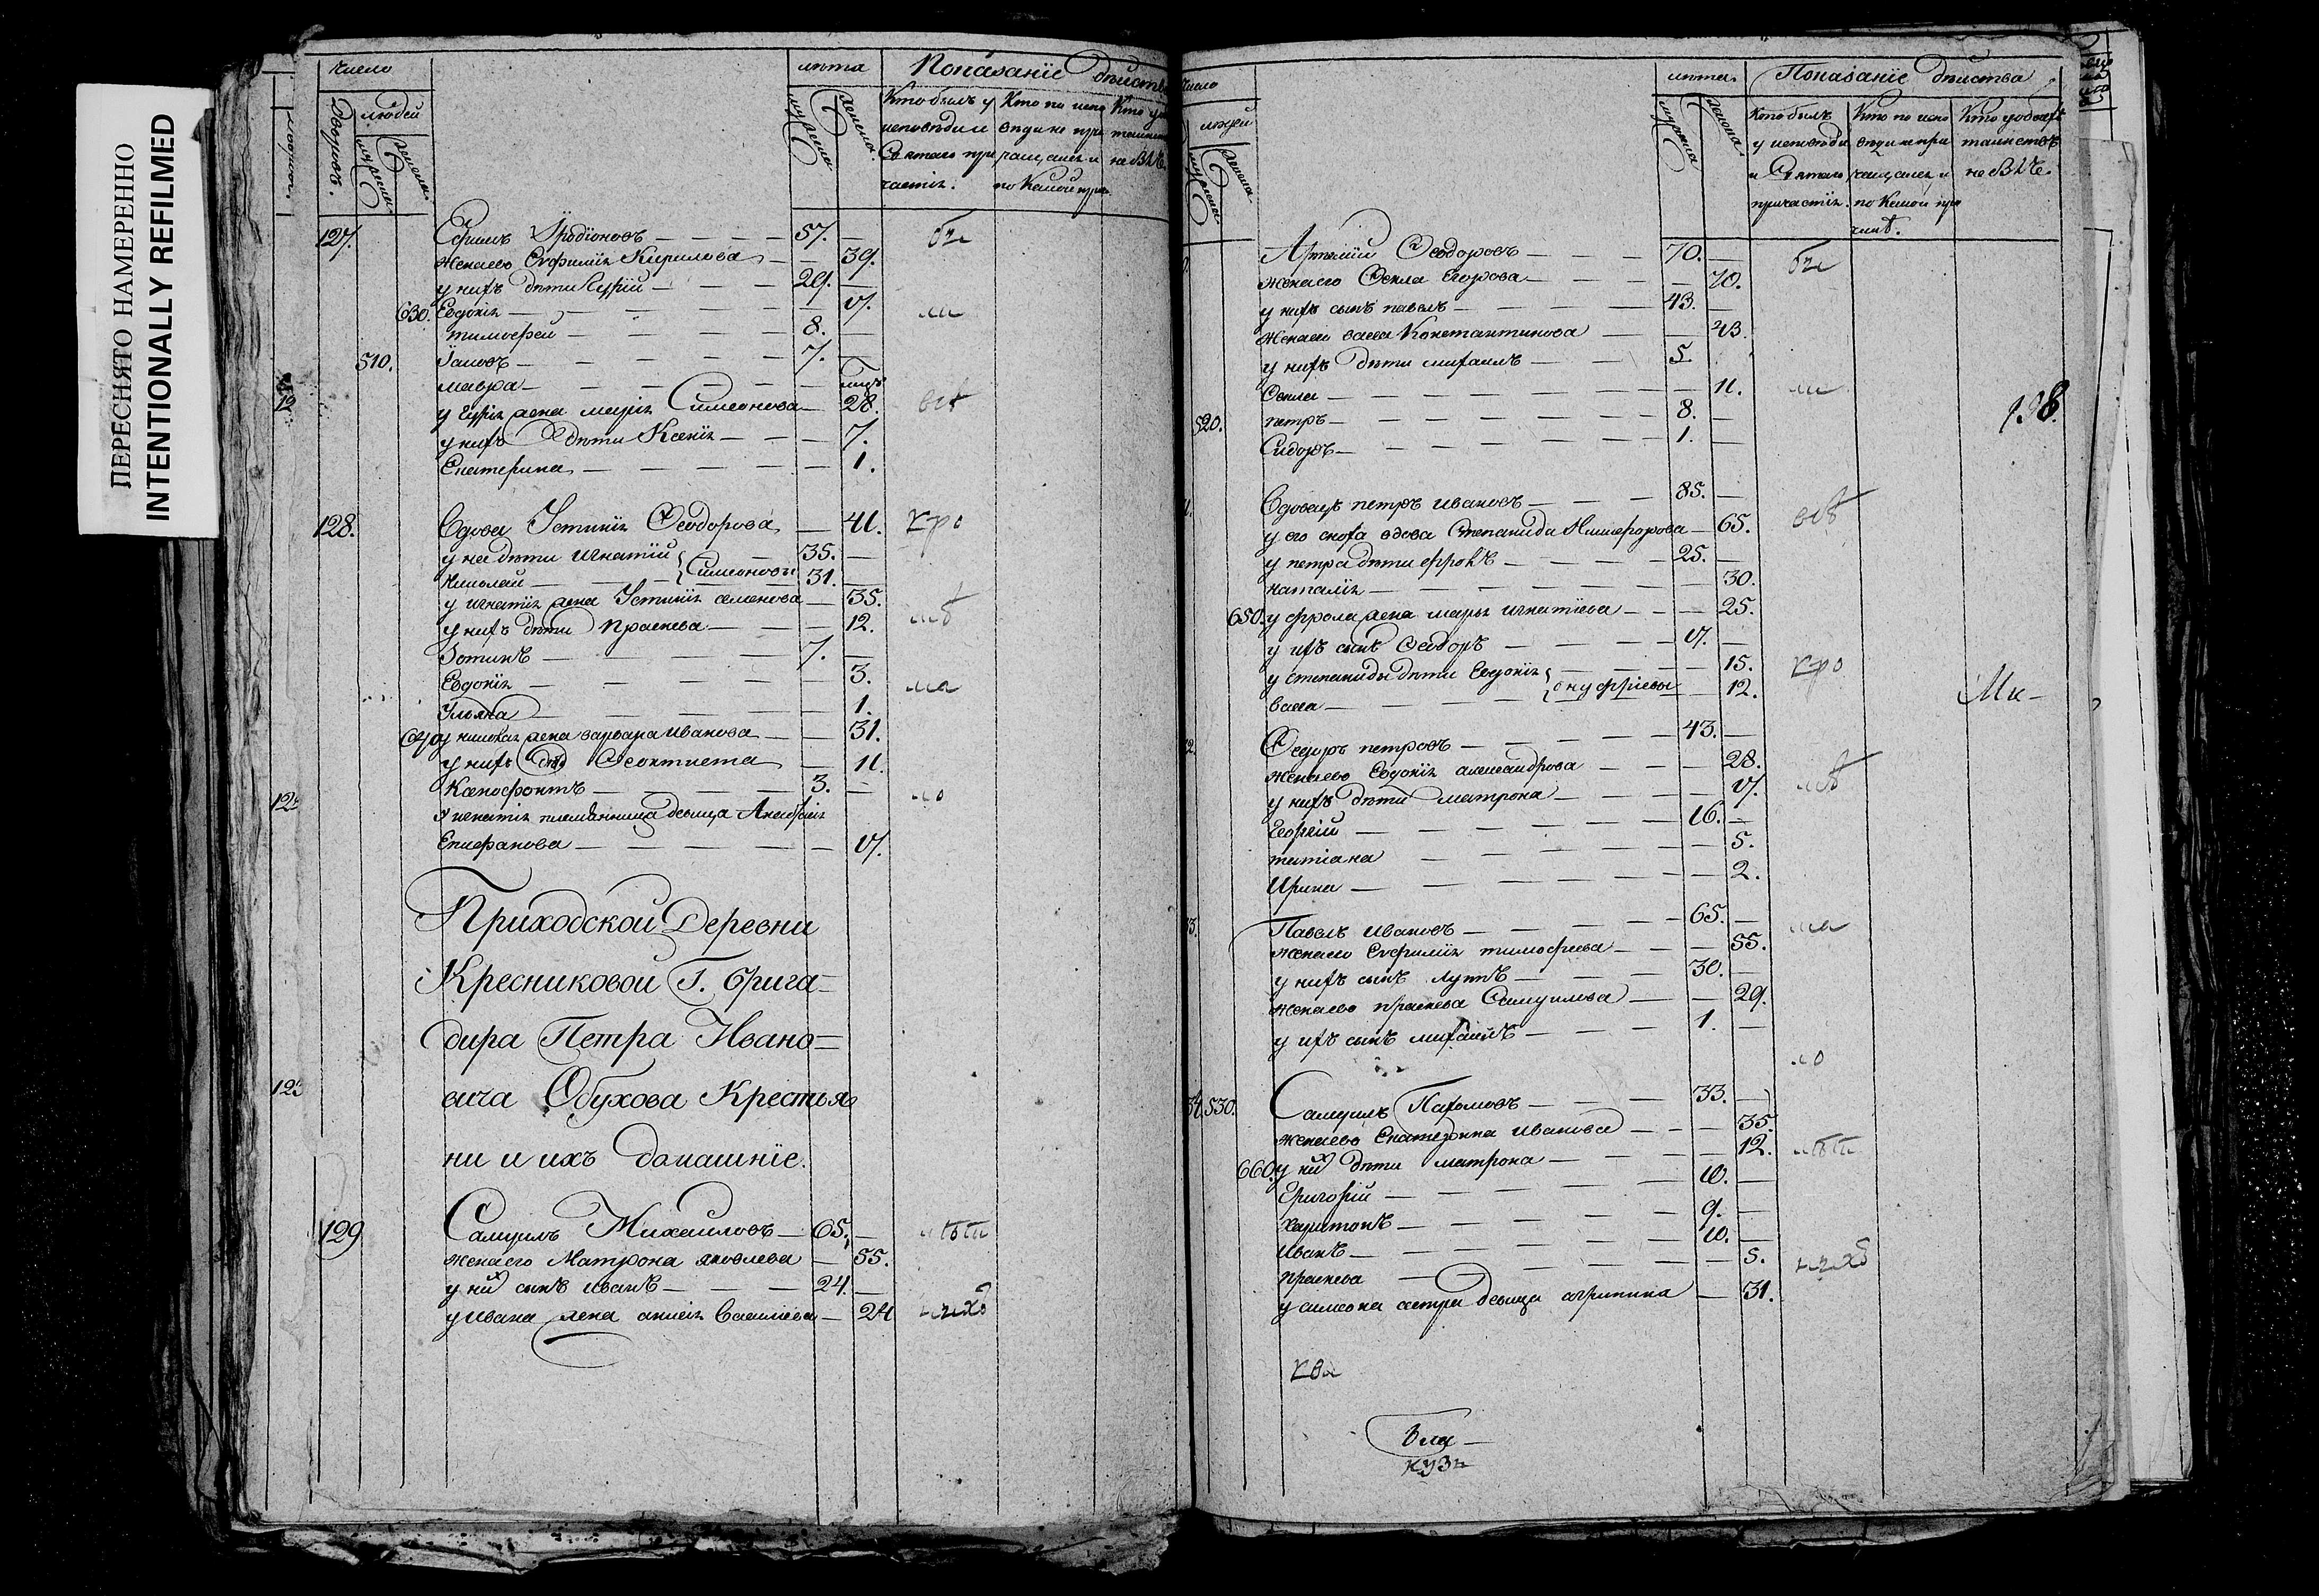 ПЕРЕСНЯТО НАМЕРЕННО
INTENTIONALLY REFILMED
число
людей
Дворовъ.
мужеска
женска
лѣта
мужеска
женска
Показаніе дѣйств
Кто былъ у исповѣди и Святаго причастія.
Кто по исповѣди не причащался и по какой при
не былъ
127. Ефимъ Иродіоновъ 57.
жена его Евфимія Кирилова 39.
у нихъ дѣти Гурій 29.
630. Евдокія 17.
тимофей 8.
510. Іаковъ 7.
мавра
у Гурія жена марія Симеонова 28.
у нихъ дѣти Ксенія 7.
Екатерина 1.
128. Вдова Устинія Феодорова
у нея дѣти игнатій 35.
николай Симеоновы 31.
у игнатія жена Устинія семенова 35.
у нихъ дѣти Прасковья 12.
Зотикъ 7.
Евдокія 3.
Ульяна 1.
640 у николая жена варвара Иванова 31.
у нихъ дѣти Феоктиста 11.
Ксенофонтъ 3.
у игнатія племянница девица
Епифанова 17.
Приходской Деревни
Кресниковой Г. брига=
дира Петра Ивано=
вича Обухова Крестья
ни и ихъ домашніе.
129 Самуилъ Михаиловъ 65.
жена его Матрона яковлева 55.
у них сынъ иванъ 24.
у Ивана жена Василіева 24
число
людей
мужеска
женска
лѣта
мужеска
женска
Показаніе дѣиства
Кто былъ у исповѣди и Святаго причастія.
Кто по исповѣди не причащался и по какой причинѣ.
Кто у обоихъ таинствъ не былъ.
Артемій Феодоровъ 70.
жена его Фекла Егорова 70.
у нихъ сынъ павелъ 43.
жена его васса Константинова 43.
у нихъ дѣти михаилъ 5.
Фекла 11.
520. петръ 8.
Сидоръ 1.
198.
Вдовецъ петръ ивановъ 85.
у его сноха вдова Степанида Никифорова 65.
у петра дѣти фролъ 25.
наталія 30.
650. у фрола жена марья игнатіева 25.
у ихъ сынъ Феодоръ 17.
у степаниды дѣти Евдокія 15.
васса онуфріевы 12.
Феодоръ петровъ 43.
жена ево Евдокія александрова 28.
у нихъ дѣти матрона 17.
Георгій 16.
татіана 5.
Ирина 2.
Павелъ Ивановъ 65.
жена его Евфимія тимофеева 55.
у нихъ сынъ лупъ 30.
жена ево прасковья Самуилова 29.
у ихъ сынъ михаилъ 1.
530. Самуилъ Пахомовъ 33.
жена ево Екатерина Иванова 35.
660. у них дѣти матрона 12.
Григорій 10.
харитонъ 9.
Иванъ 10.
прасковья 5.
у симеона сестра девица агрипина 31.